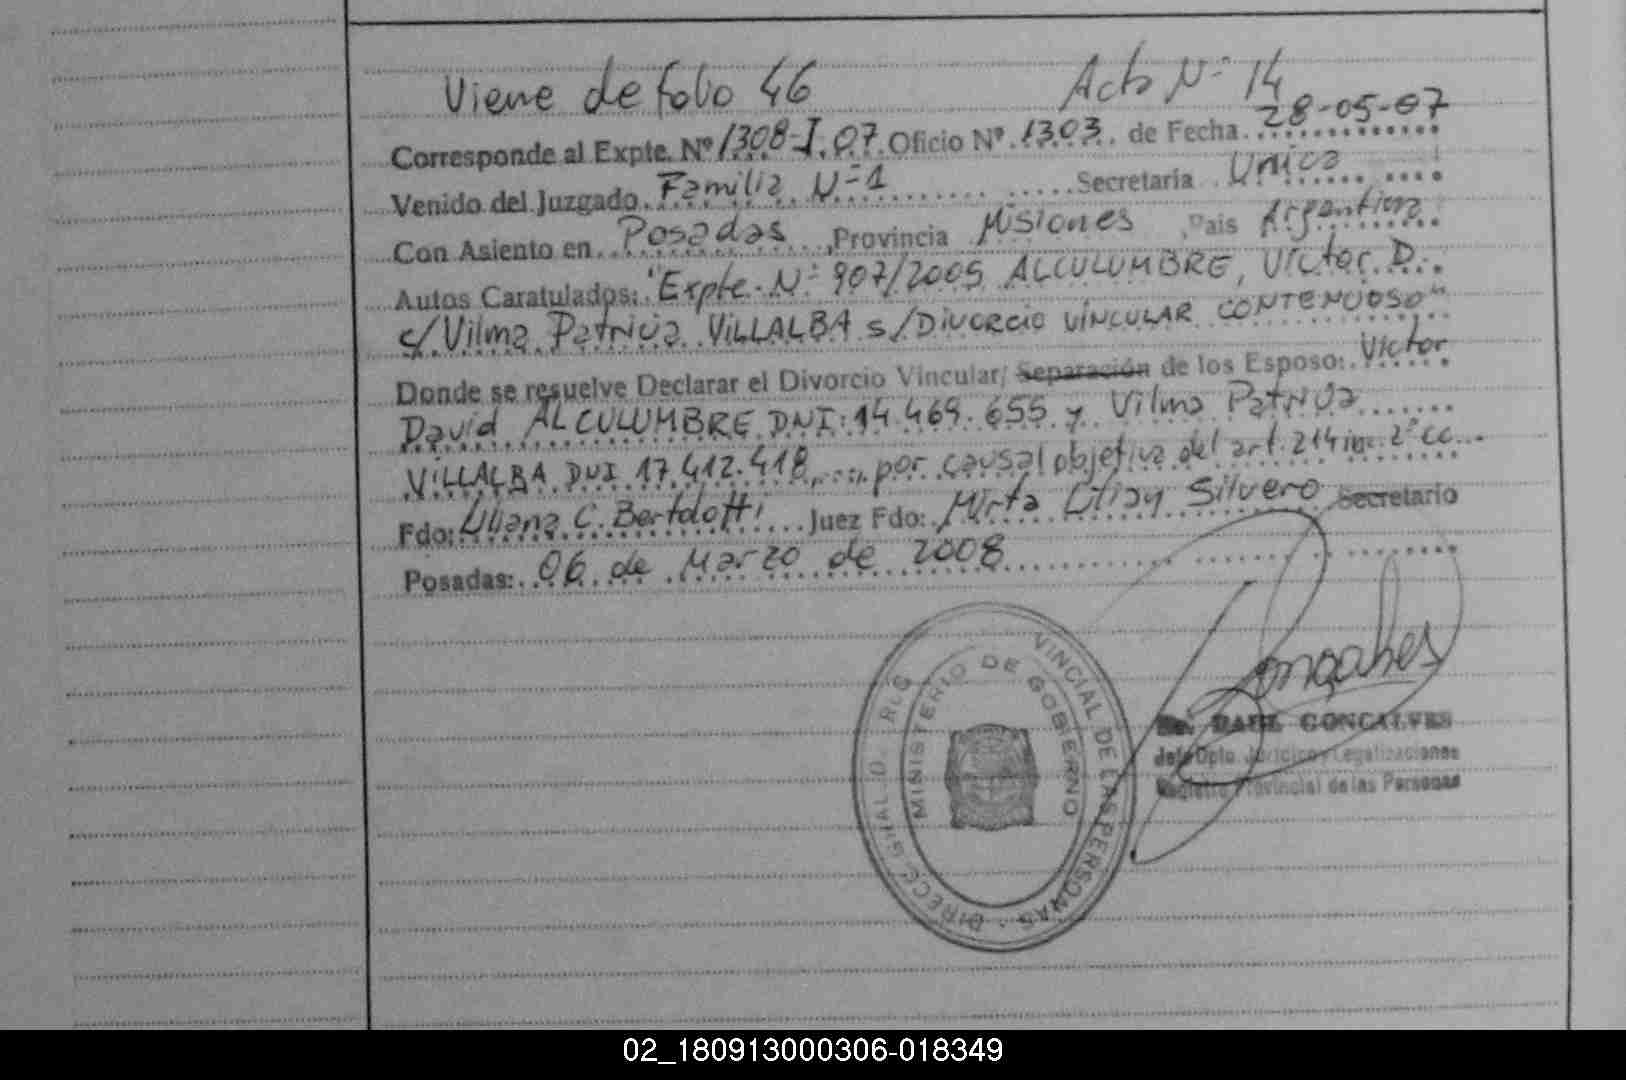 Viene de folio 46 Acta Nº 14
Corresponde al Expte. Nº 1308-I-07 Oficio Nº 1303 de Fecha 28-05-07
Venido del Juzgado Familia Nº 1 Secretaria Unica
Con Asiento en Posadas, Provincia Misiones, Pais Argentina
Autos Caratulados: "Expte. Nº 907/2005 ALCULUMBRE, Victor D.
c/ Vilma Patricia VILLALBA s/ DIVORCIO VINCULAR CONTENCIOSO"
Donde se resuelve Declarar el Divorcio Vincular/ Separación de los Esposo: Victor
David ALCULUMBRE DNI: 14.469.655 y Vilma Patricia
VILLALBA DNI 17.412.418, por causal objetiva del art. 214 inc. 2º CC
Fdo: Liliana C. Bertolotti Juez Fdo: Mirta Lilian Silvero Secretario
Posadas: 06 de Marzo de 2008
MINISTERIO DE GOBIERNO
VINCIAL DE LAS PERSONAS
Goncalves
RAUL GONCALVES
Jefe Dpto. Juridico y Legalizaciones
Registro Provincial de las Personas
02_180913000306-018349